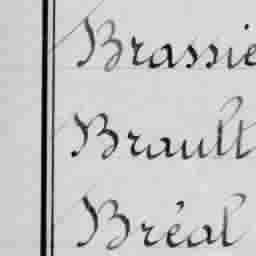 Brassie
Brault
Bréal